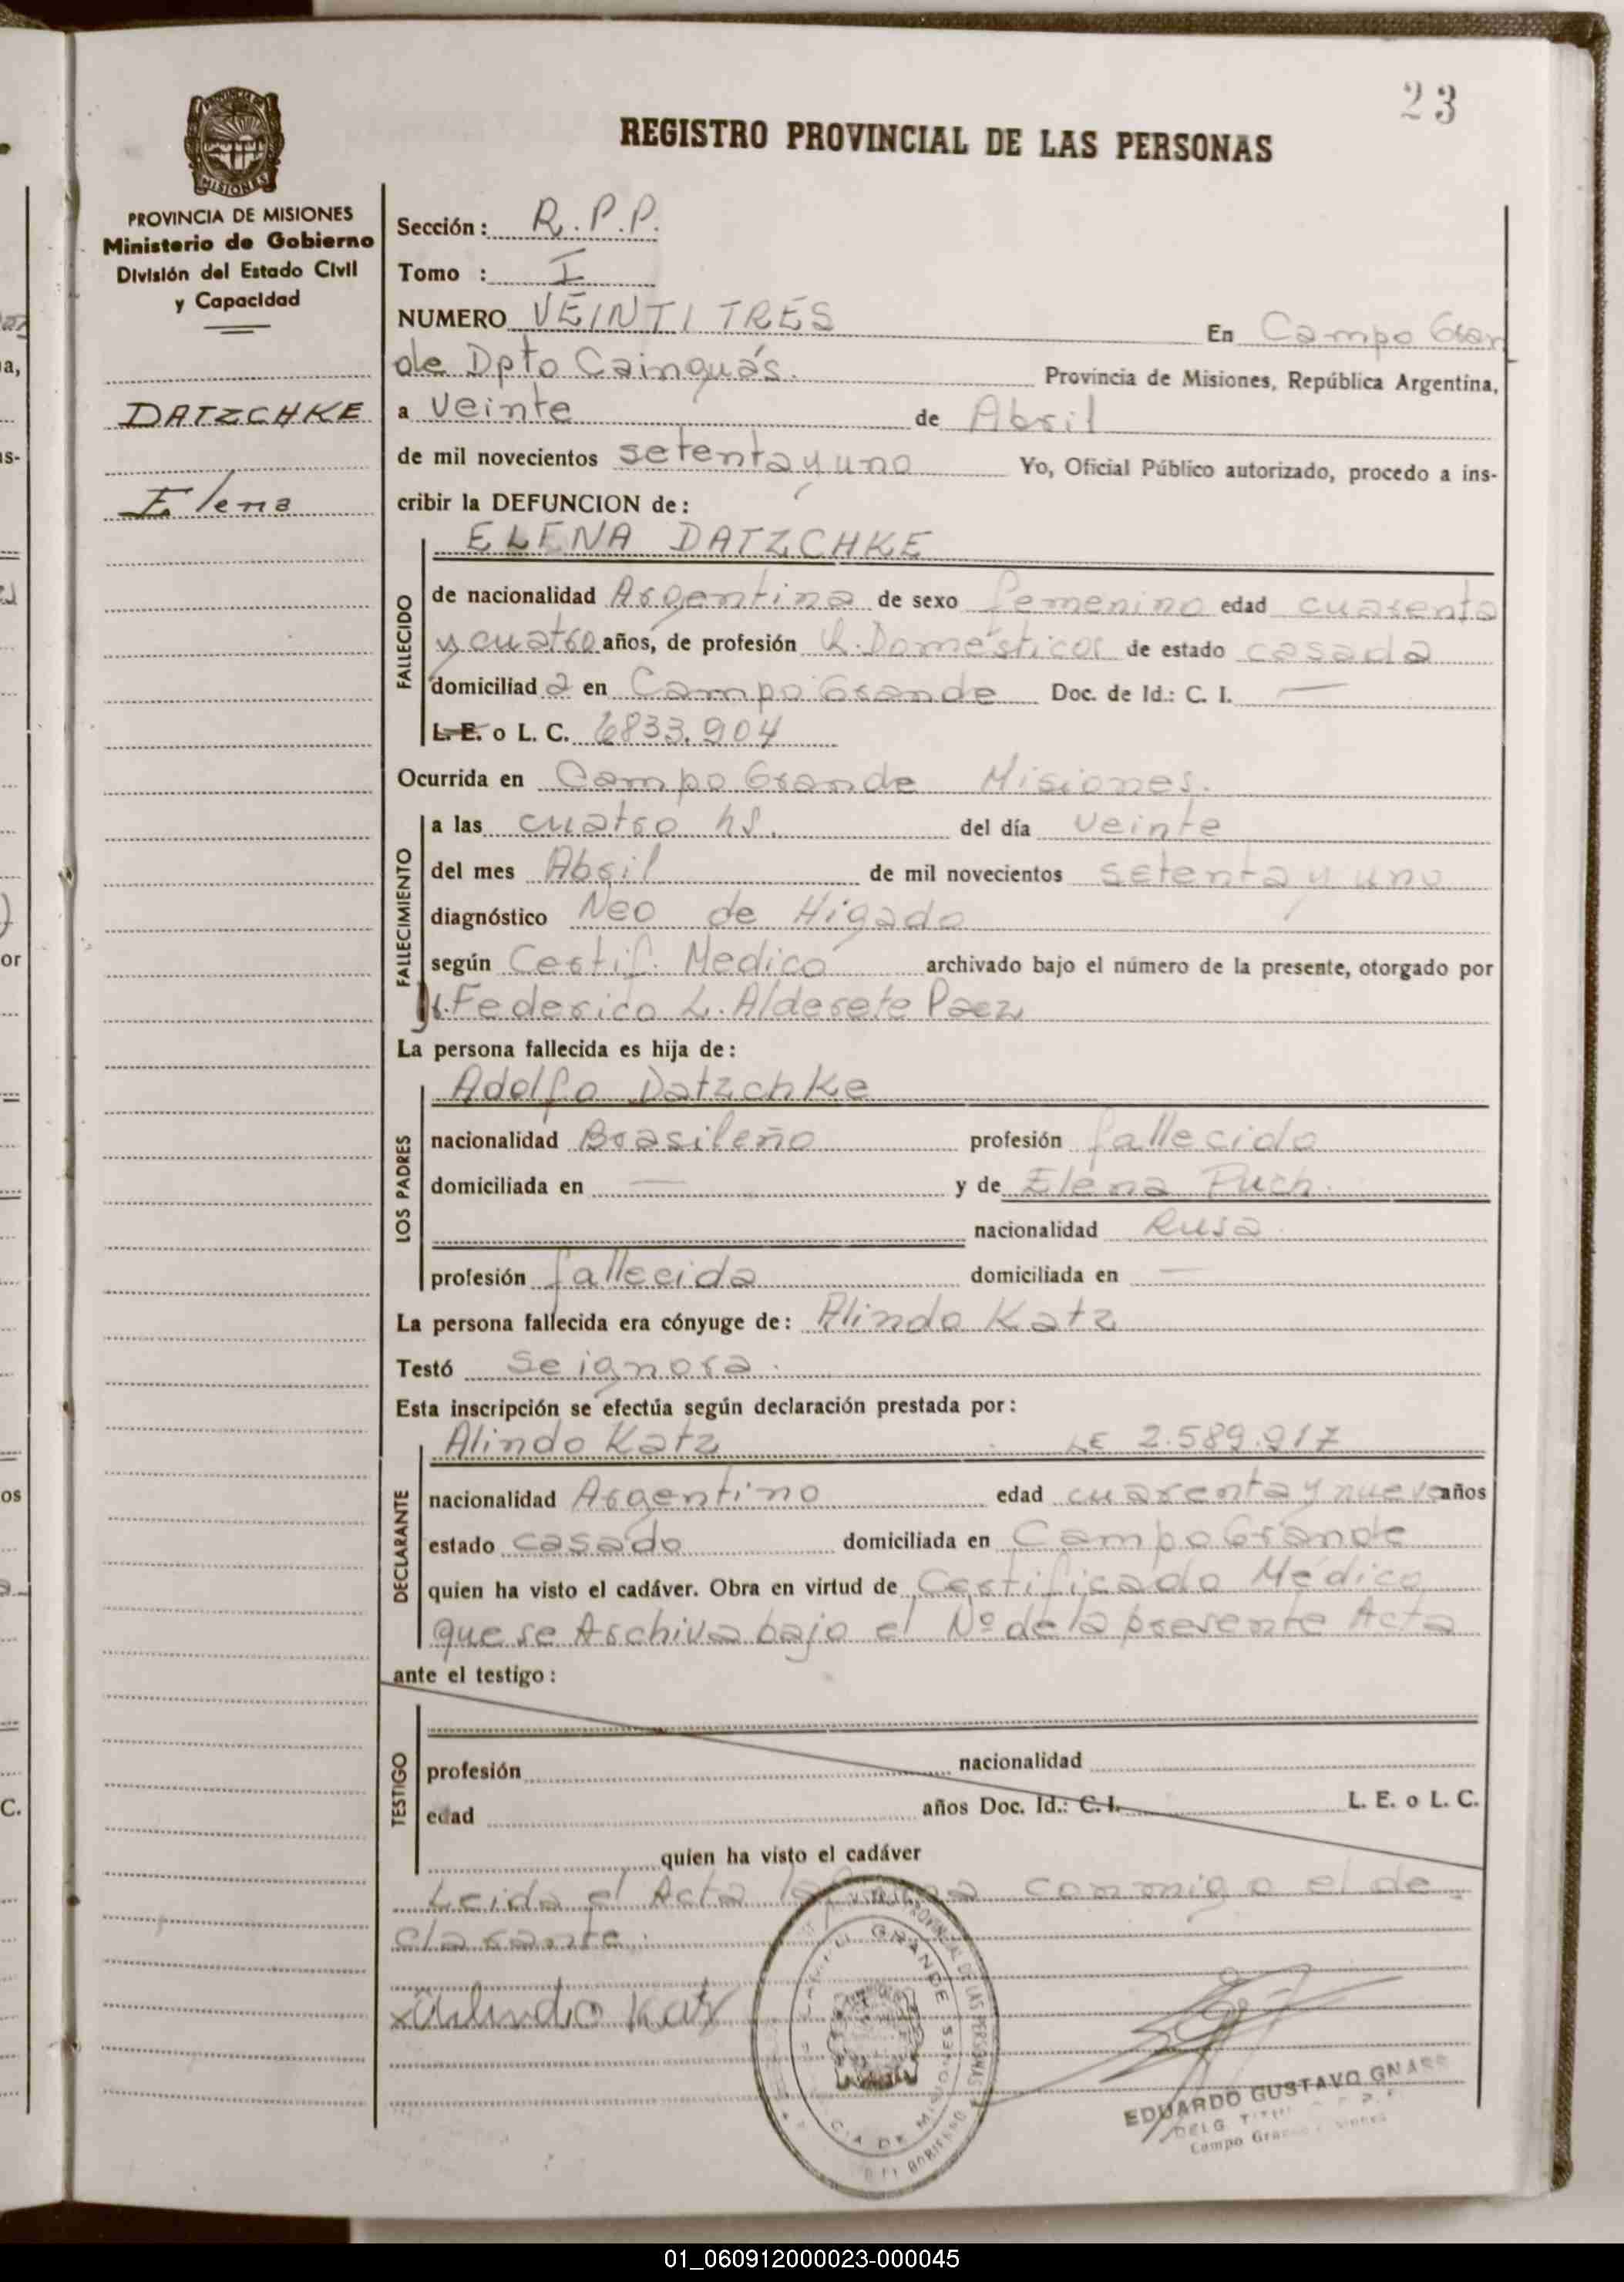 23
REGISTRO PROVINCIAL DE LAS PERSONAS
MISIONES
PROVINCIA DE MISIONES
Ministerio de Gobierno
División del Estado Civil
y Capacidad
DATZCHKE
Elena
Sección: R.P.P.
Tomo : I
NUMERO VEINTITRES En Campo Gran
de Dpto Cainguás. Provincia de Misiones, República Argentina,
a veinte de Abril
de mil novecientos setenta y uno Yo, Oficial Público autorizado, procedo a ins-
cribir la DEFUNCION de:
ELENA DATZCHKE
FALLECIDO
de nacionalidad Argentina de sexo femenino edad cuarenta
y cuatro años, de profesión Q. Domésticos de estado casada
domiciliad a en Campo Grande Doc. de Id.: C. I. —
L. E. o L. C. 6833.904
Ocurrida en Campo Grande Misiones.
FALLECIMIENTO
a las cuatro hs. del día veinte
del mes Abril de mil novecientos setenta y uno
diagnóstico Neo de Higado
según Certif. Medico archivado bajo el número de la presente, otorgado por
Dr. Federico L. Alderete Paez
La persona fallecida es hija de:
LOS PADRES
Adolfo Datzchke
nacionalidad Brasileño profesión fallecido
domiciliada en — y de Elena Puch.
nacionalidad Rusa.
profesión fallecida domiciliada en —
La persona fallecida era cónyuge de: Alindo Katz
Testó se ignora.
Esta inscripción se efectúa según declaración prestada por:
DECLARANTE
Alindo Katz LE 2.589.917
nacionalidad Argentino edad cuarenta y nueve años
estado casado domiciliada en Campo Grande
quien ha visto el cadáver. Obra en virtud de Certificado Médico
que se Archiva bajo el Nº de la presente Acta
ante el testigo:
TESTIGO
profesión nacionalidad
edad años Doc. Id.: C. I. L. E. o L. C.
quien ha visto el cadáver
Leida el Acta la firma conmigo el de-
clarante.
xAlindo Katz
CAMPO GRANDE
PROVINCIAL DE LAS PERSONAS
EDUARDO GUSTAVO GNASS
DELG.
Campo Grande
01_060912000023-000045